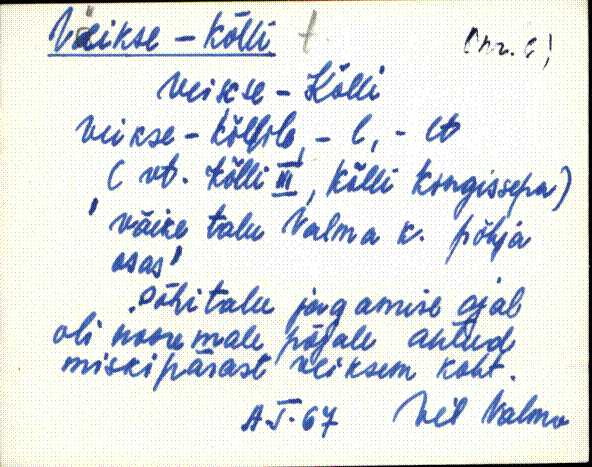 Väikse-Kõlli t
Veikse-Kõlli
Veikse-kõllile, -l, -lt
(vt. Kõlli III, Kõlli Kingissepa)
'väike talu Valma k. põhja
osas'
Põhitalu jagamise ajal
oli nooremale pojale antud
miskipärast veiksem koht.
A.T. 67 Vil Valma